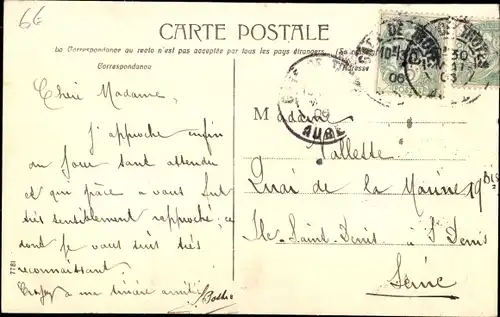 6E
CARTE POSTALE
La Correspondance au recto n'est pas acceptée par tous les pays étrangers.
Correspondance
Adresse
Chère Madame,
J'approche enfin
du jour tant attendu
et qui grâce à vous fut
très sensiblement rapproché; ce
dont je vous suis très
reconnaissant.
Croyez à ma sincère amitié
Madame
Vallette
Quai de la Marine 19 Bis
Ile-Saint-Denis à St Denis
Seine
AUBE
7781